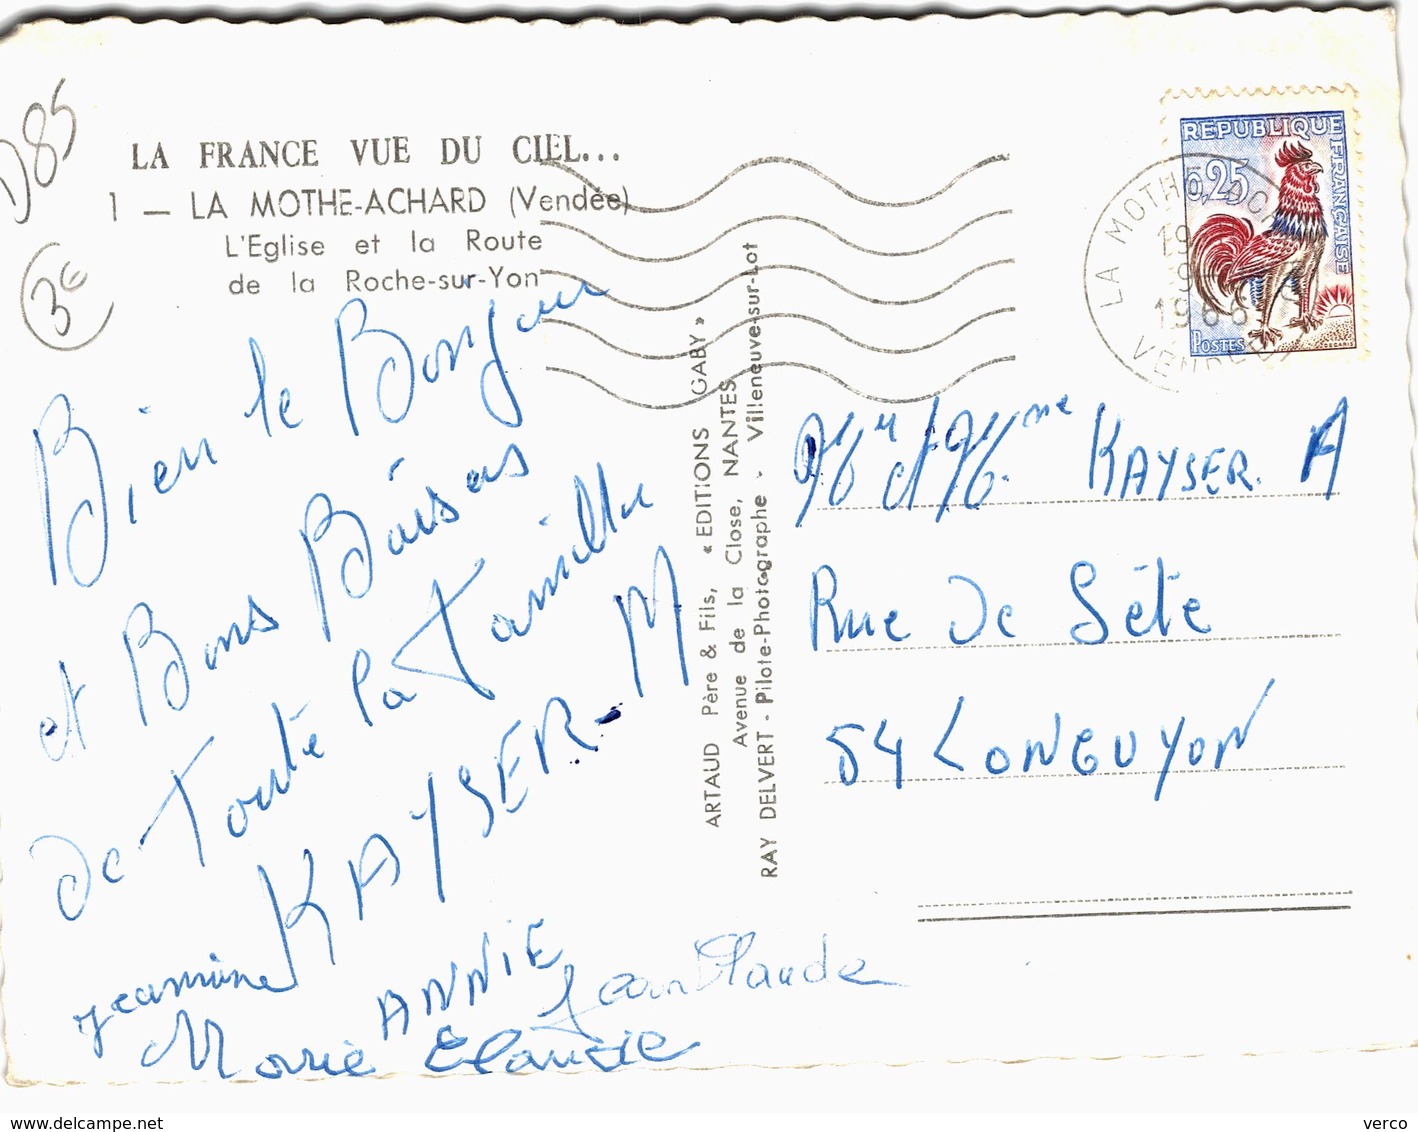 D85
3€
LA FRANCE VUE DU CIEL...
1 — LA MOTHE-ACHARD (Vendée)
L'Eglise et la Route
de la Roche-sur-Yon
Bien le Bonjour
et Bons Baisers
de Toute la Famille
KAYSER-M
Jeannine
ANNIE
Jean Claude
Marie Claude
ARTAUD Père & Fils, « EDITIONS GABY »
Avenue de la Close, NANTES
RAY DELVERT - Pilote-Photographe - Villeneuve-sur-Lot
REPUBLIQUE FRANÇAISE
0,25
POSTES
DECARIS
LA MOTHE ACHARD
19
1966
VENDEE
Mr et Mme KAYSER. A
Rue De Sète
54 LONGUYON
www.delcampe.net
verco